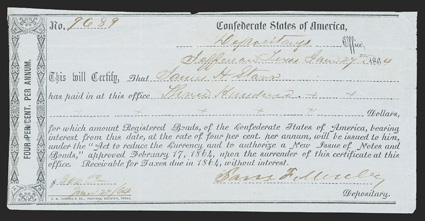 No. 9689
Confederate States of America,
Depositary's Office,
Jefferson Texas 1864
This will Certify, That
has paid in at this office Three Hundred
Dollars,
for which amount Registered Bonds, of the Confederate States of America, bearing
interest from this date, at the rate of four per cent. per annum, will be issued to him,
under the "Act to reduce the Currency and to authorize a New Issue of Notes and
Bonds," approved February 17, 1864, upon the surrender of this certificate at this
office. Receivable for Taxes due in 1864, without interest.
Depositary.
FOUR PER CENT. PER ANNUM.